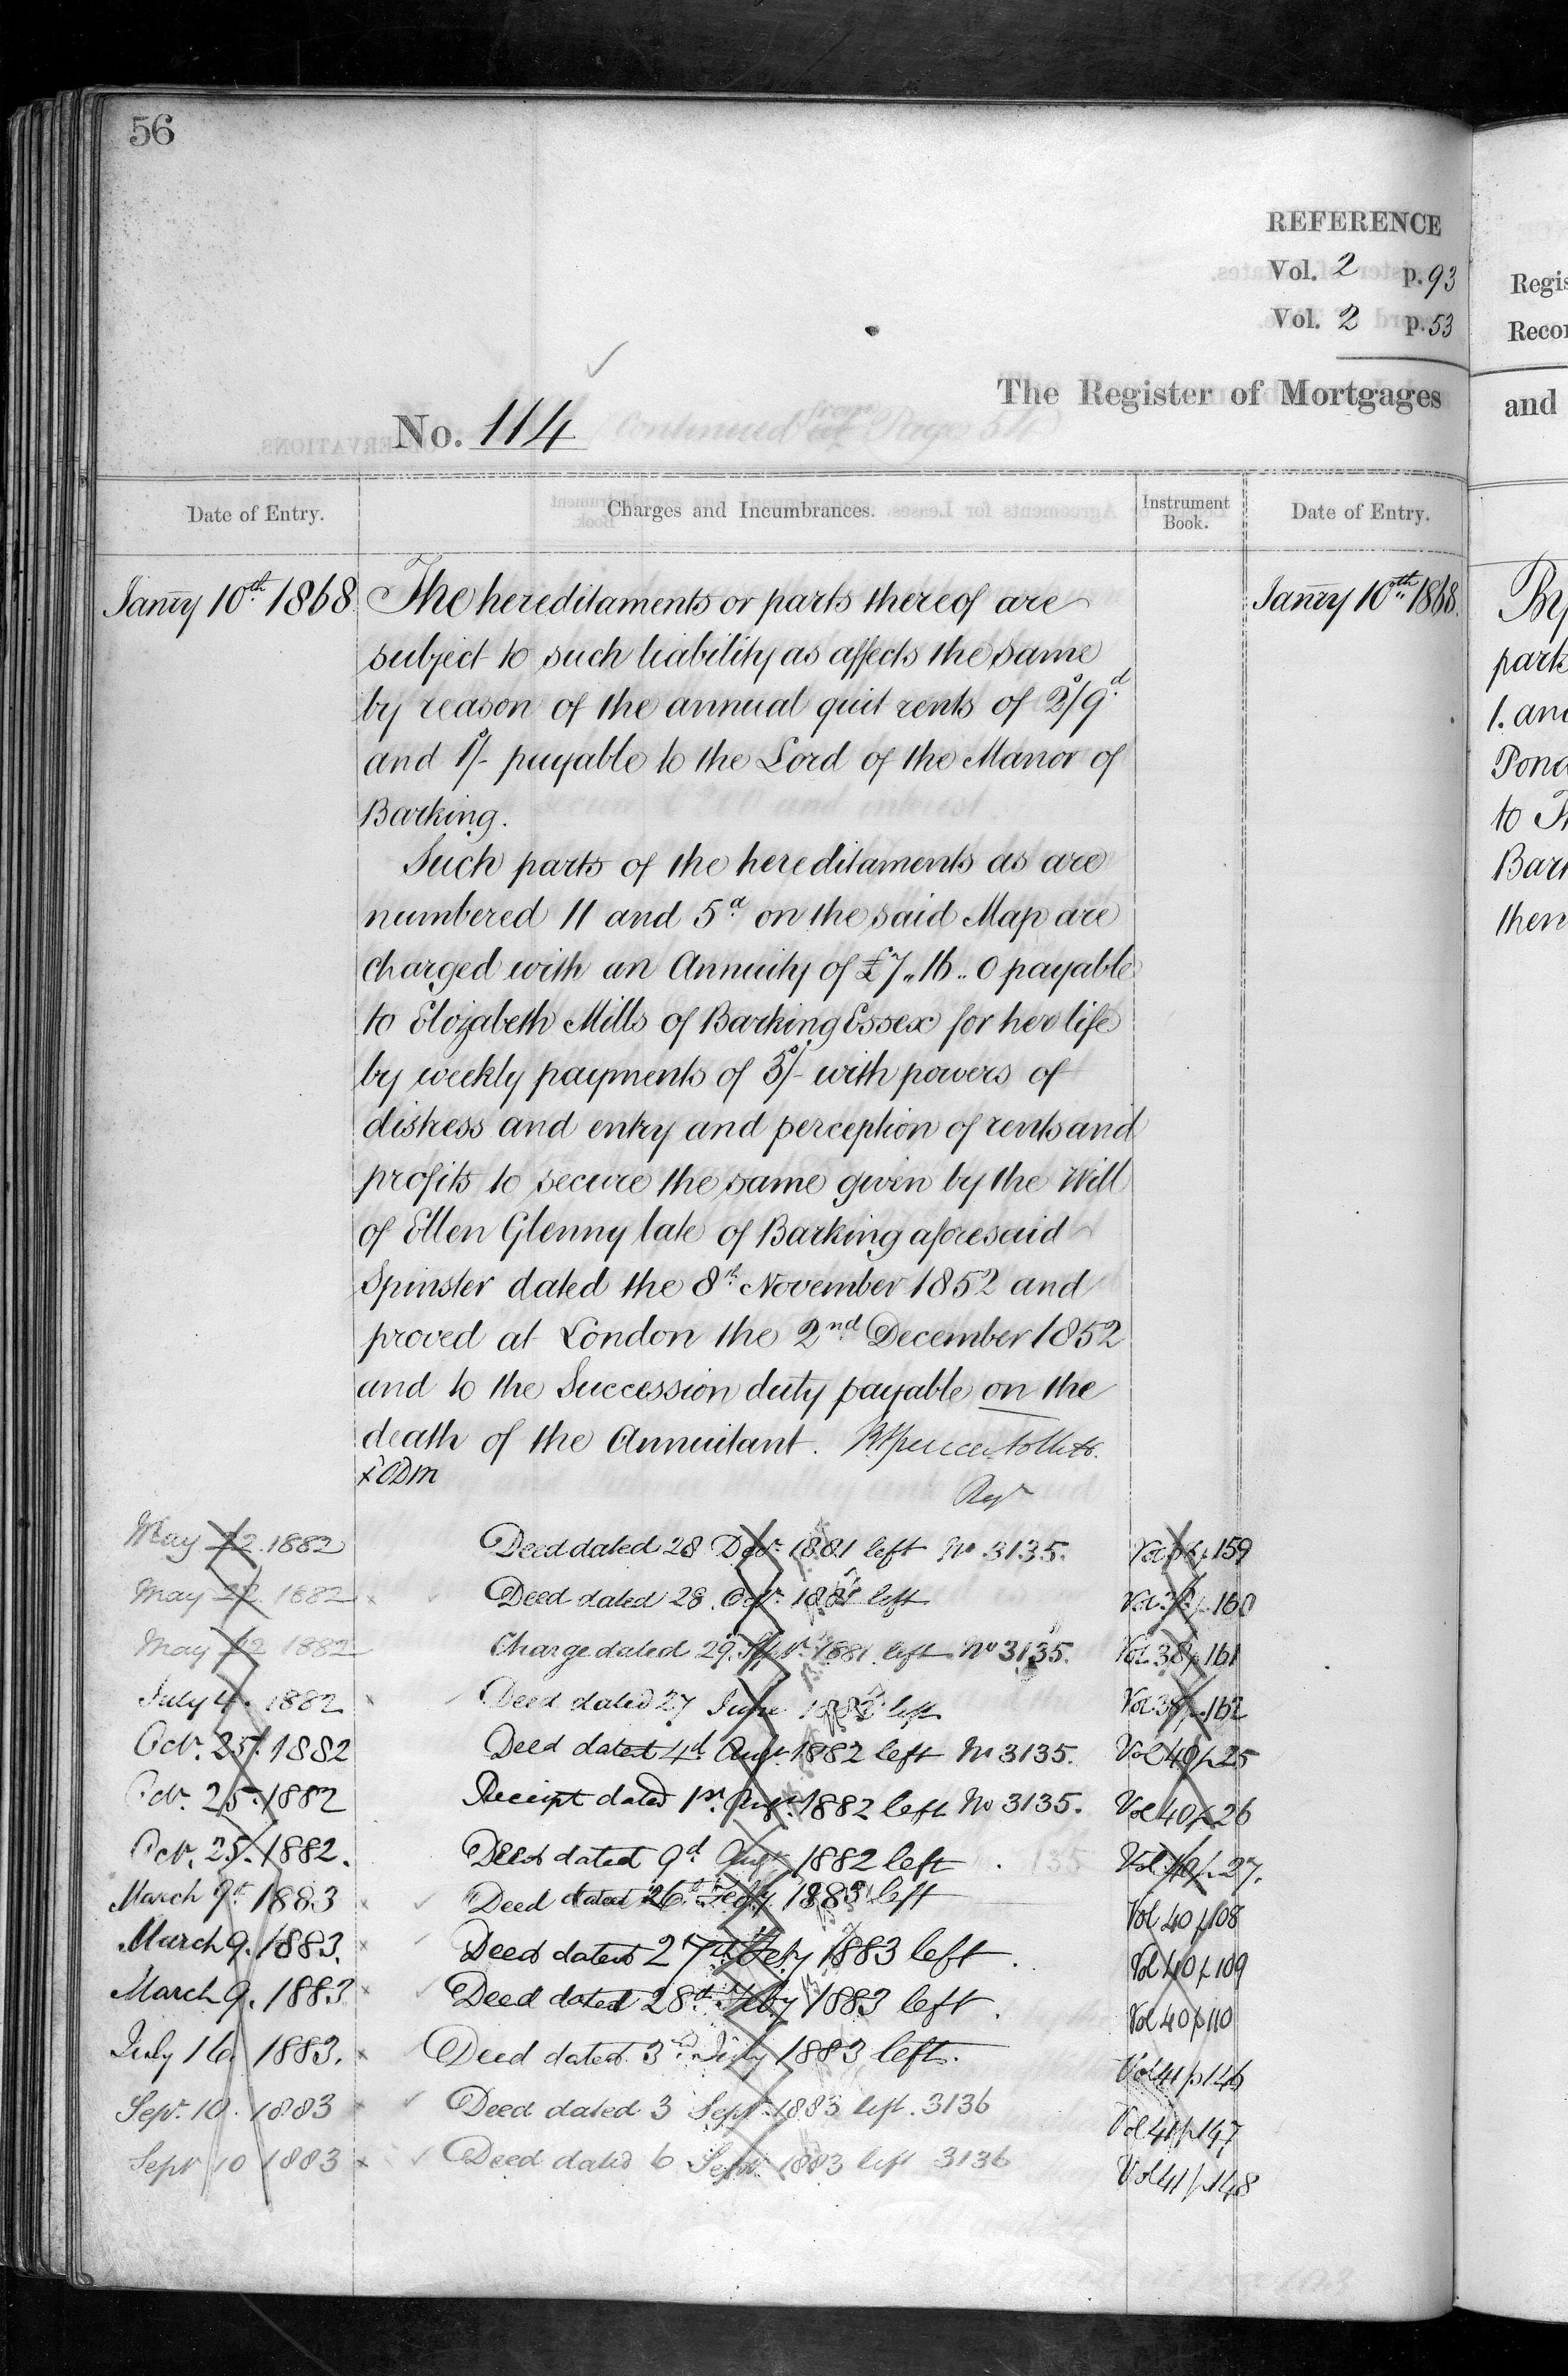 56
REFERENCE
Vol. 2 p. 93
Vol. 2 p. 53
The Register of Mortgages
No. 114 Continued from Page 54
Date of Entry. Charges and Incumbrances. Instrument Book. Date of Entry.
Janry 10th 1868 The hereditaments or parts thereof are Janry 10th 1868.
subject to such liability as affects the same
by reason of the annual quit rents of 2s/9d.
and 1s/- payable to the Lord of the Manor of
Barking.
Such parts of the hereditaments as are
numbered 11 and 5a on the said Map are
charged with an Annuity of £7„16„0 payable
to Elizabeth Mills of Barking Essex for her life
by weekly payments of 3s/- with powers of
distress and entry and perception of rents and
profits to secure the same given by the Will
of Ellen Glenny late of Barking aforesaid
Spinster dated the 8th November 1852 and
proved at London the 2nd December 1852
and to the Succession duty payable on the
death of the Annuitant.
Regr
May 22. 1882 Deed dated 28 1881 left No 3135. Vol 38 p 159
May 22. 1882 Deed dated 28. Octr. 1881 left Vol 38 p. 160
May 22 1882 Charge dated 29. Septr. 1881. left No 3135. Vol. 38 p 161
July 4. 1882 Deed dated 27 June 1882 left Vol 38 p. 162
Octr. 25. 1882 Deed dated 4d Augt. 1882 left No 3135. Vol 40 p 25
Octr. 25. 1882 Receipt dated 1st. Augt. 1882 left No 3135. Vol 40 p 26
Octr. 25. 1882. Deed dated 9d. Augt. 1882 left Vol 40 p. 27.
March 9th 1883 Deed dated 26th Feby. 1883 left Vol 40 p 108
March 9. 1883. Deed dated 27th Feby 1883 left. Vol 40 p 109
March 9. 1883 Deed dated 28th. Feby 1883 left. Vol 40 p 110
July 16. 1883. Deed dated 3rd. July 1883 left. Vol 41 p 146
Sepr. 10. 1883 Deed dated 3 Sepr. 1883 left. 3136 Vol 41 p 147
Sepr 10 1883 Deed dated 6 Sepr. 1883 left 3136 Vol 41 p. 148
Regis
Recor
and
By
park
1. and
Pond
to Th
Bark
then